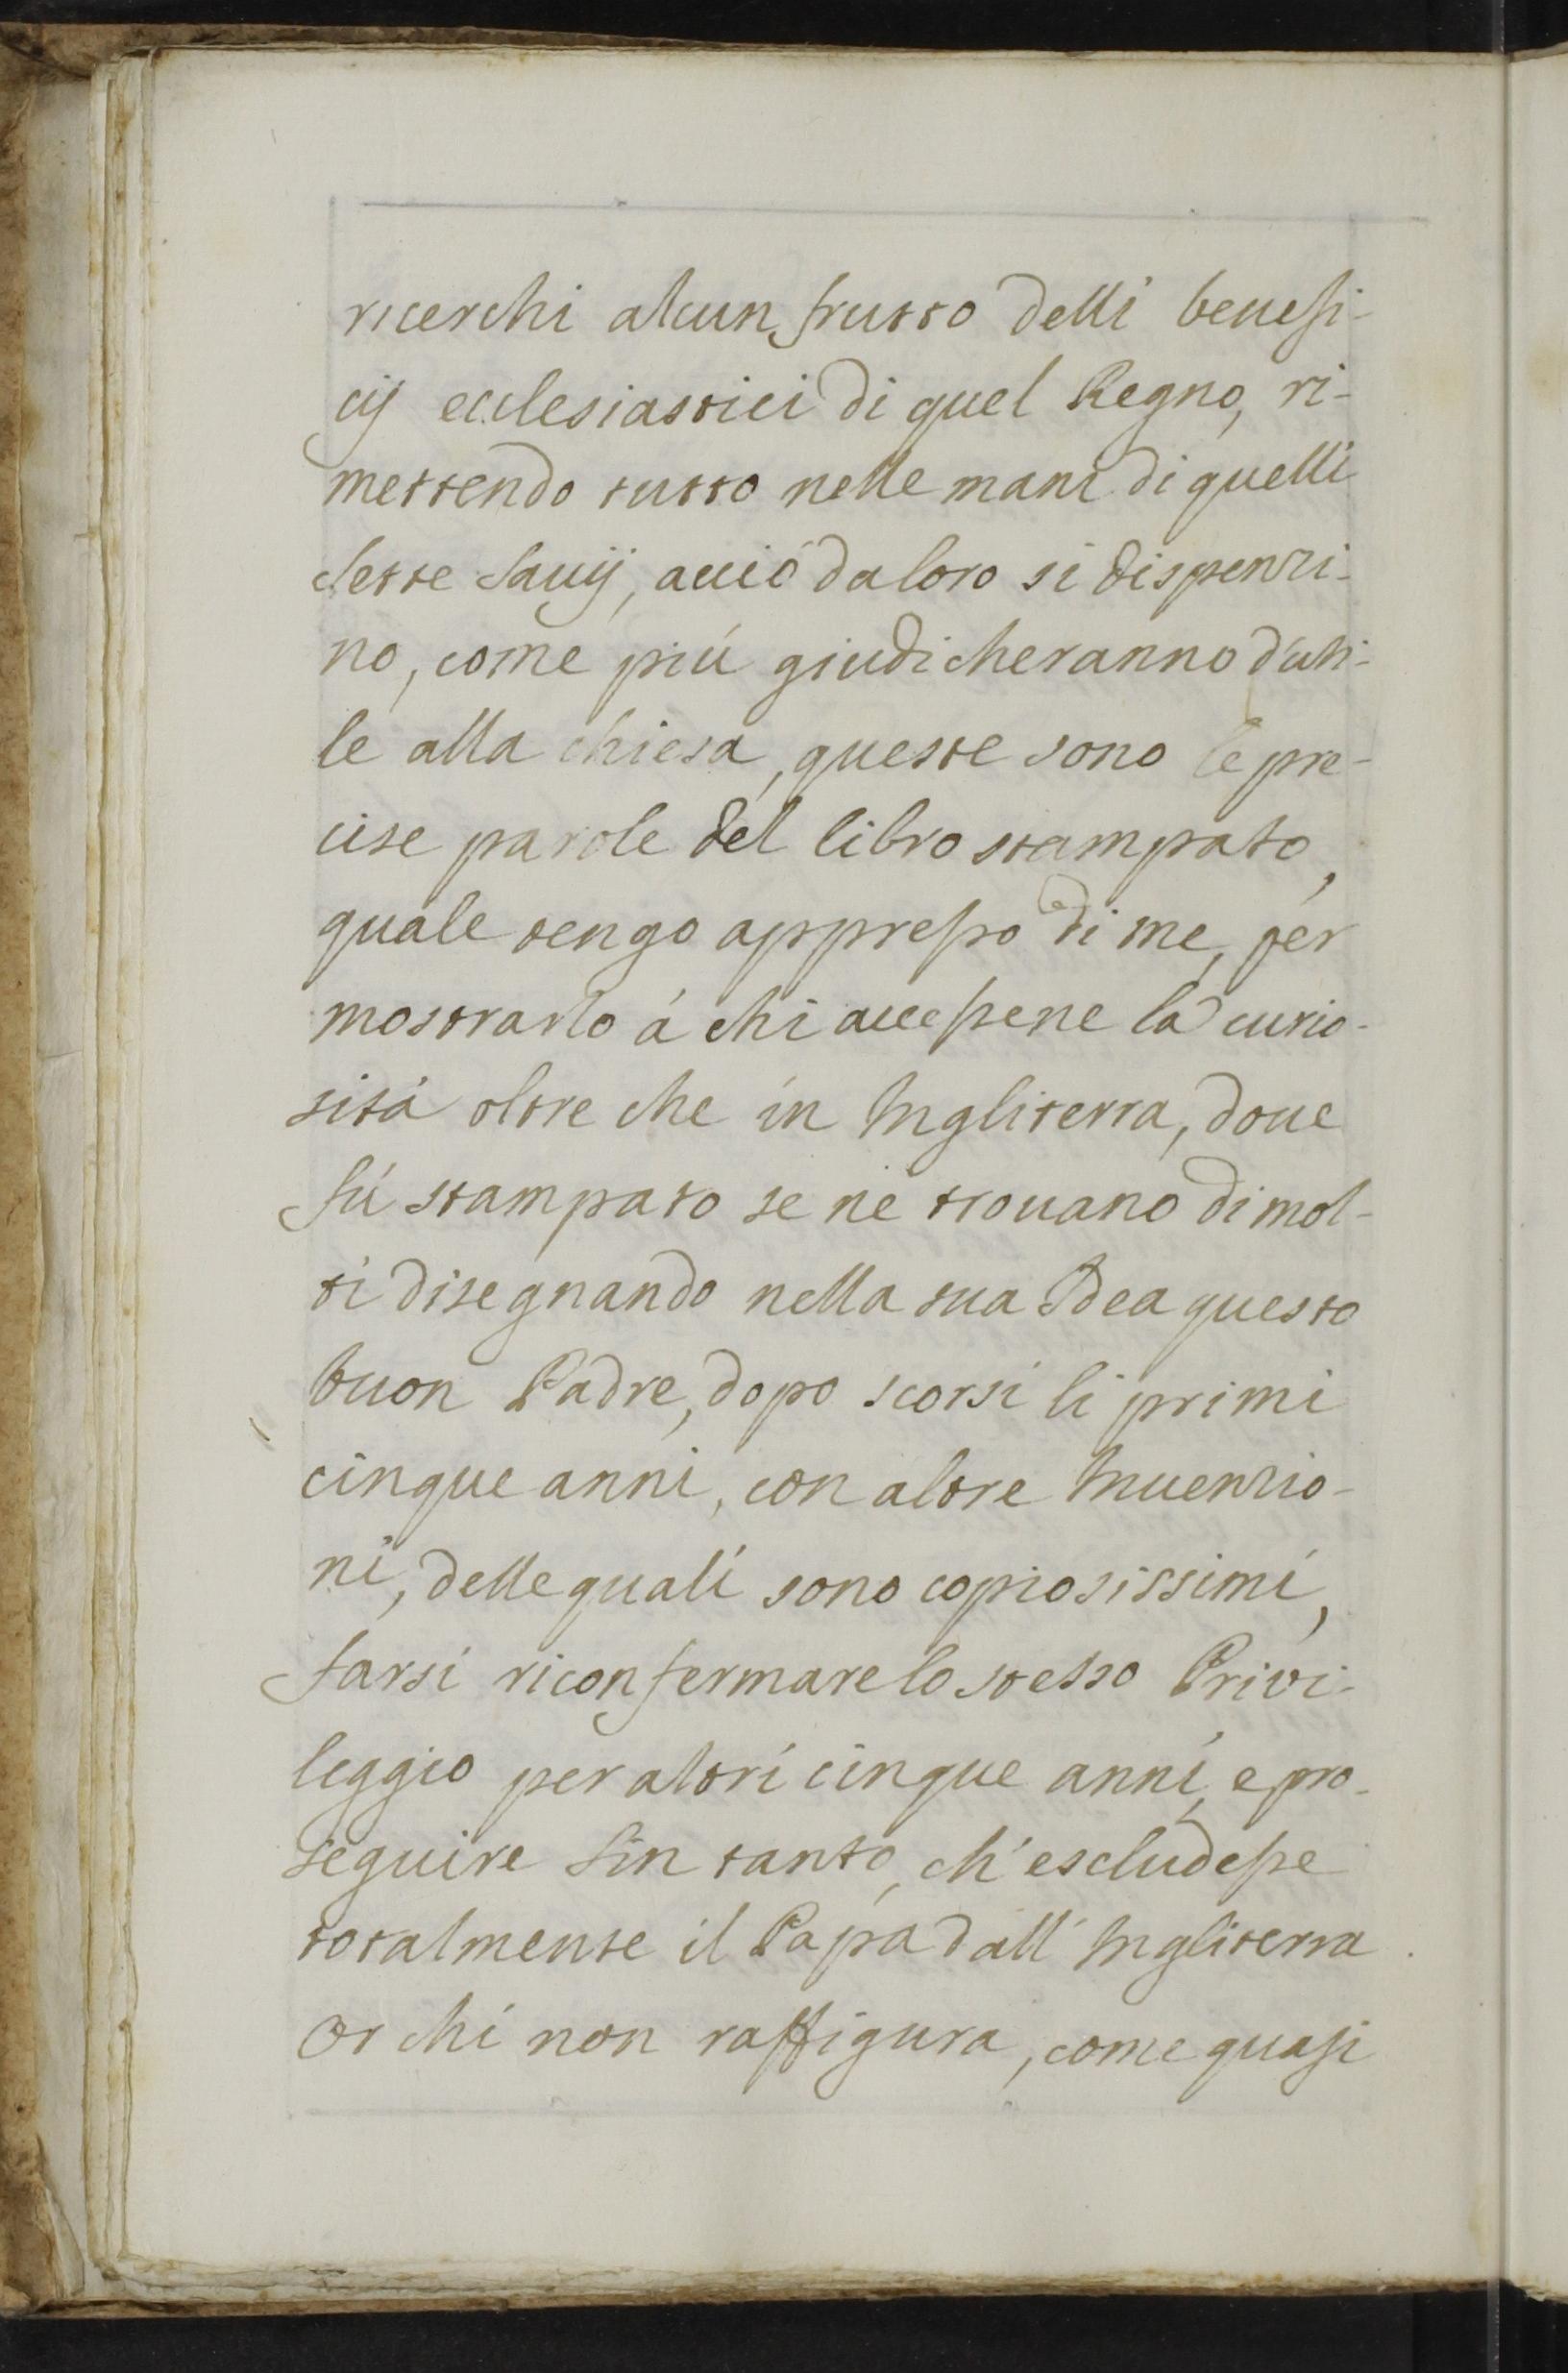 ricerchi alcun frutto delli benefi-
cij ecclesiastici di quel Regno, ri-
mettendo tutto nelle mani di quelli
sette Sauij, acciò da loro si dispenzi-
no, come più giudicheranno d'uti-
le alla chiesa, queste sono le pre-
cise parole del libro stampato,
quale tengo appresso di me, per
mostrarlo à chi auessene la curio-
sità oltre che in Ingliterra, doue
fù stampato se ne trouano di mol-
ti disegnando nella sua Idea questo
buon Padre, dopo scorsi li primi
cinque anni, con altre Inuenzio-
ni, delle quali sono copiosissimi,
farsi riconfermare lo stesso Privi-
leggio per altri cinque anni, e pro-
seguire sin tanto, ch'escludesse
totalmente il Papa dall'Ingliterra.
Or chi non raffigura, come quasi